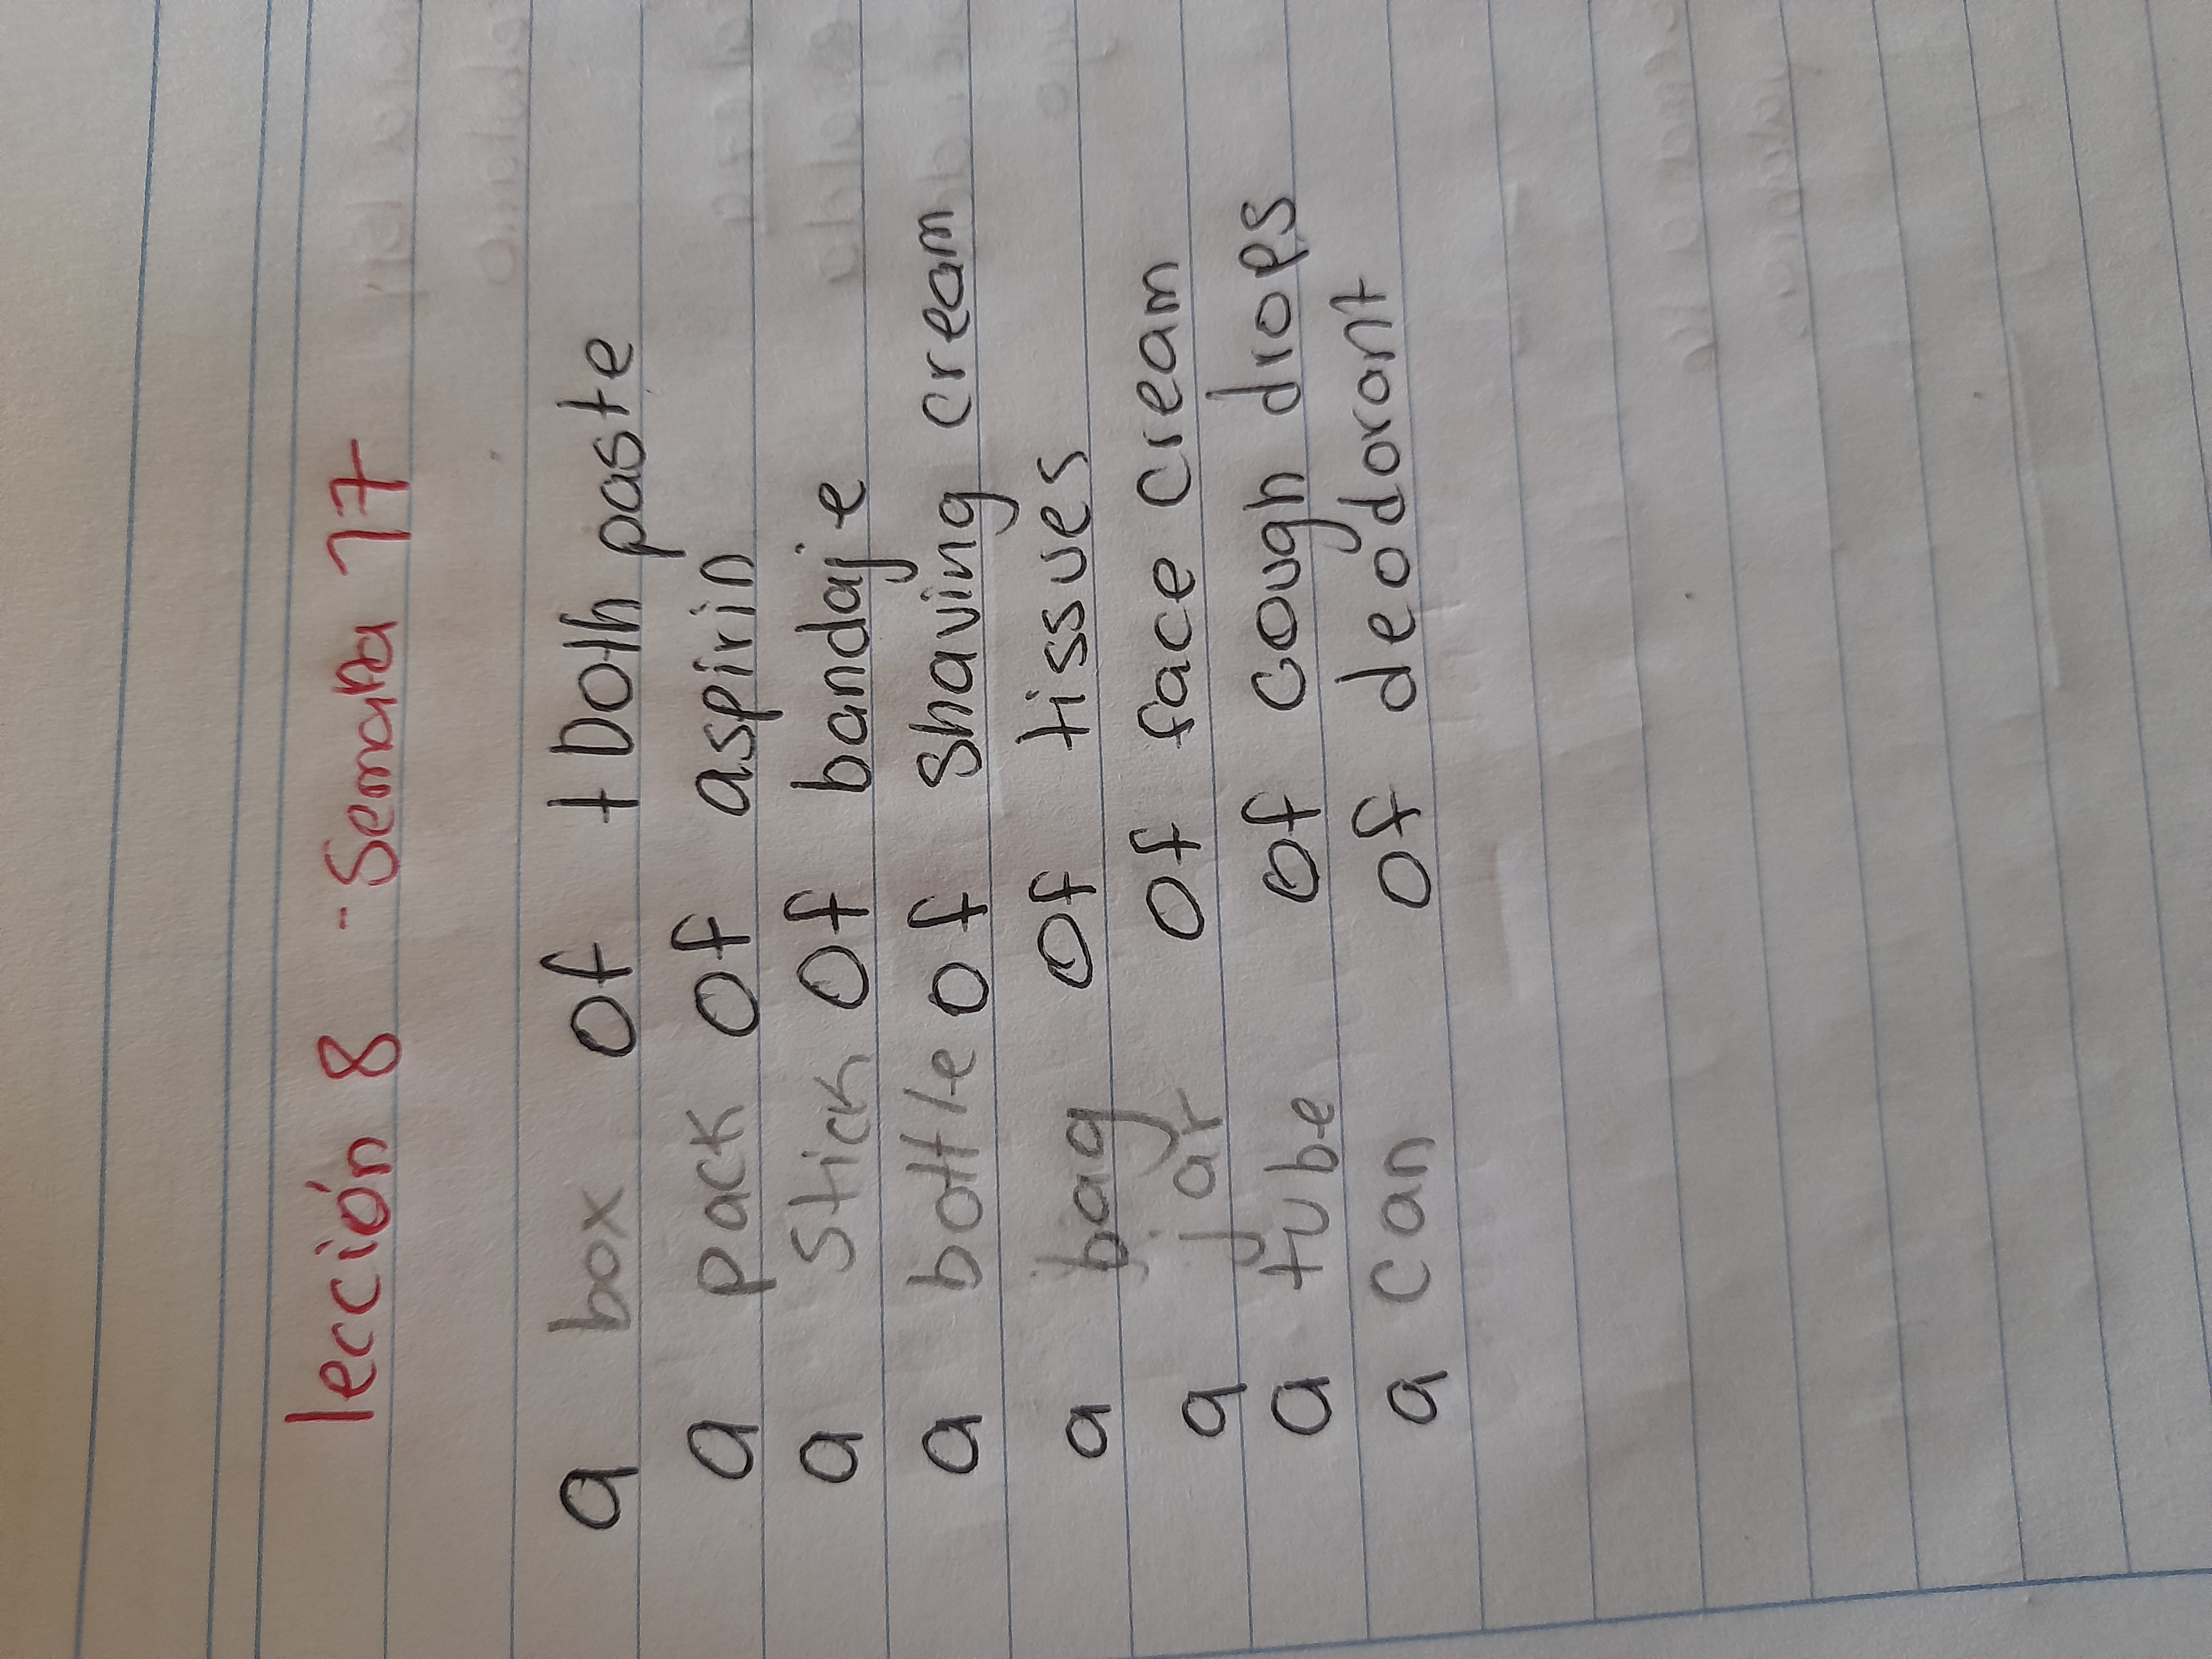 lección 8 - Semana 17
a box of tooth paste
a pack of aspirin
a stick of bandaje
a bottle of shaving cream
a bag of tissues
a jar of face cream
a tube of cough drops
a can of deodorant